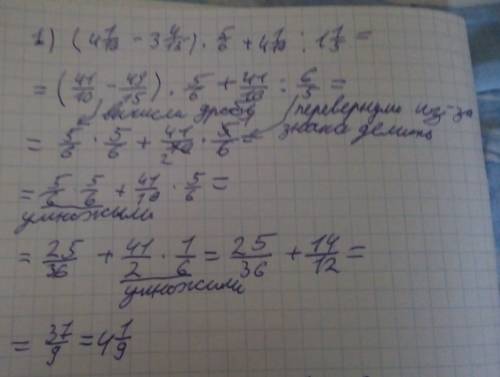 1) (4 1/10 - 3 4/15) · 5/6 + 4 1/10 : 1 1/5 =
= (41/10 - 49/15) · 5/6 + 41/10 : 6/5 =
вычисли дробь перевернули из-за
= 5/6 · 5/6 + 41/10 · 5/6 = знака делить
2
= 5/6 · 5/6 + 41/10 · 5/6 =
умножили
= 25/36 + 41/2 · 1/6 = 25/36 + 14/12 =
умножили
= 37/9 = 4 1/9